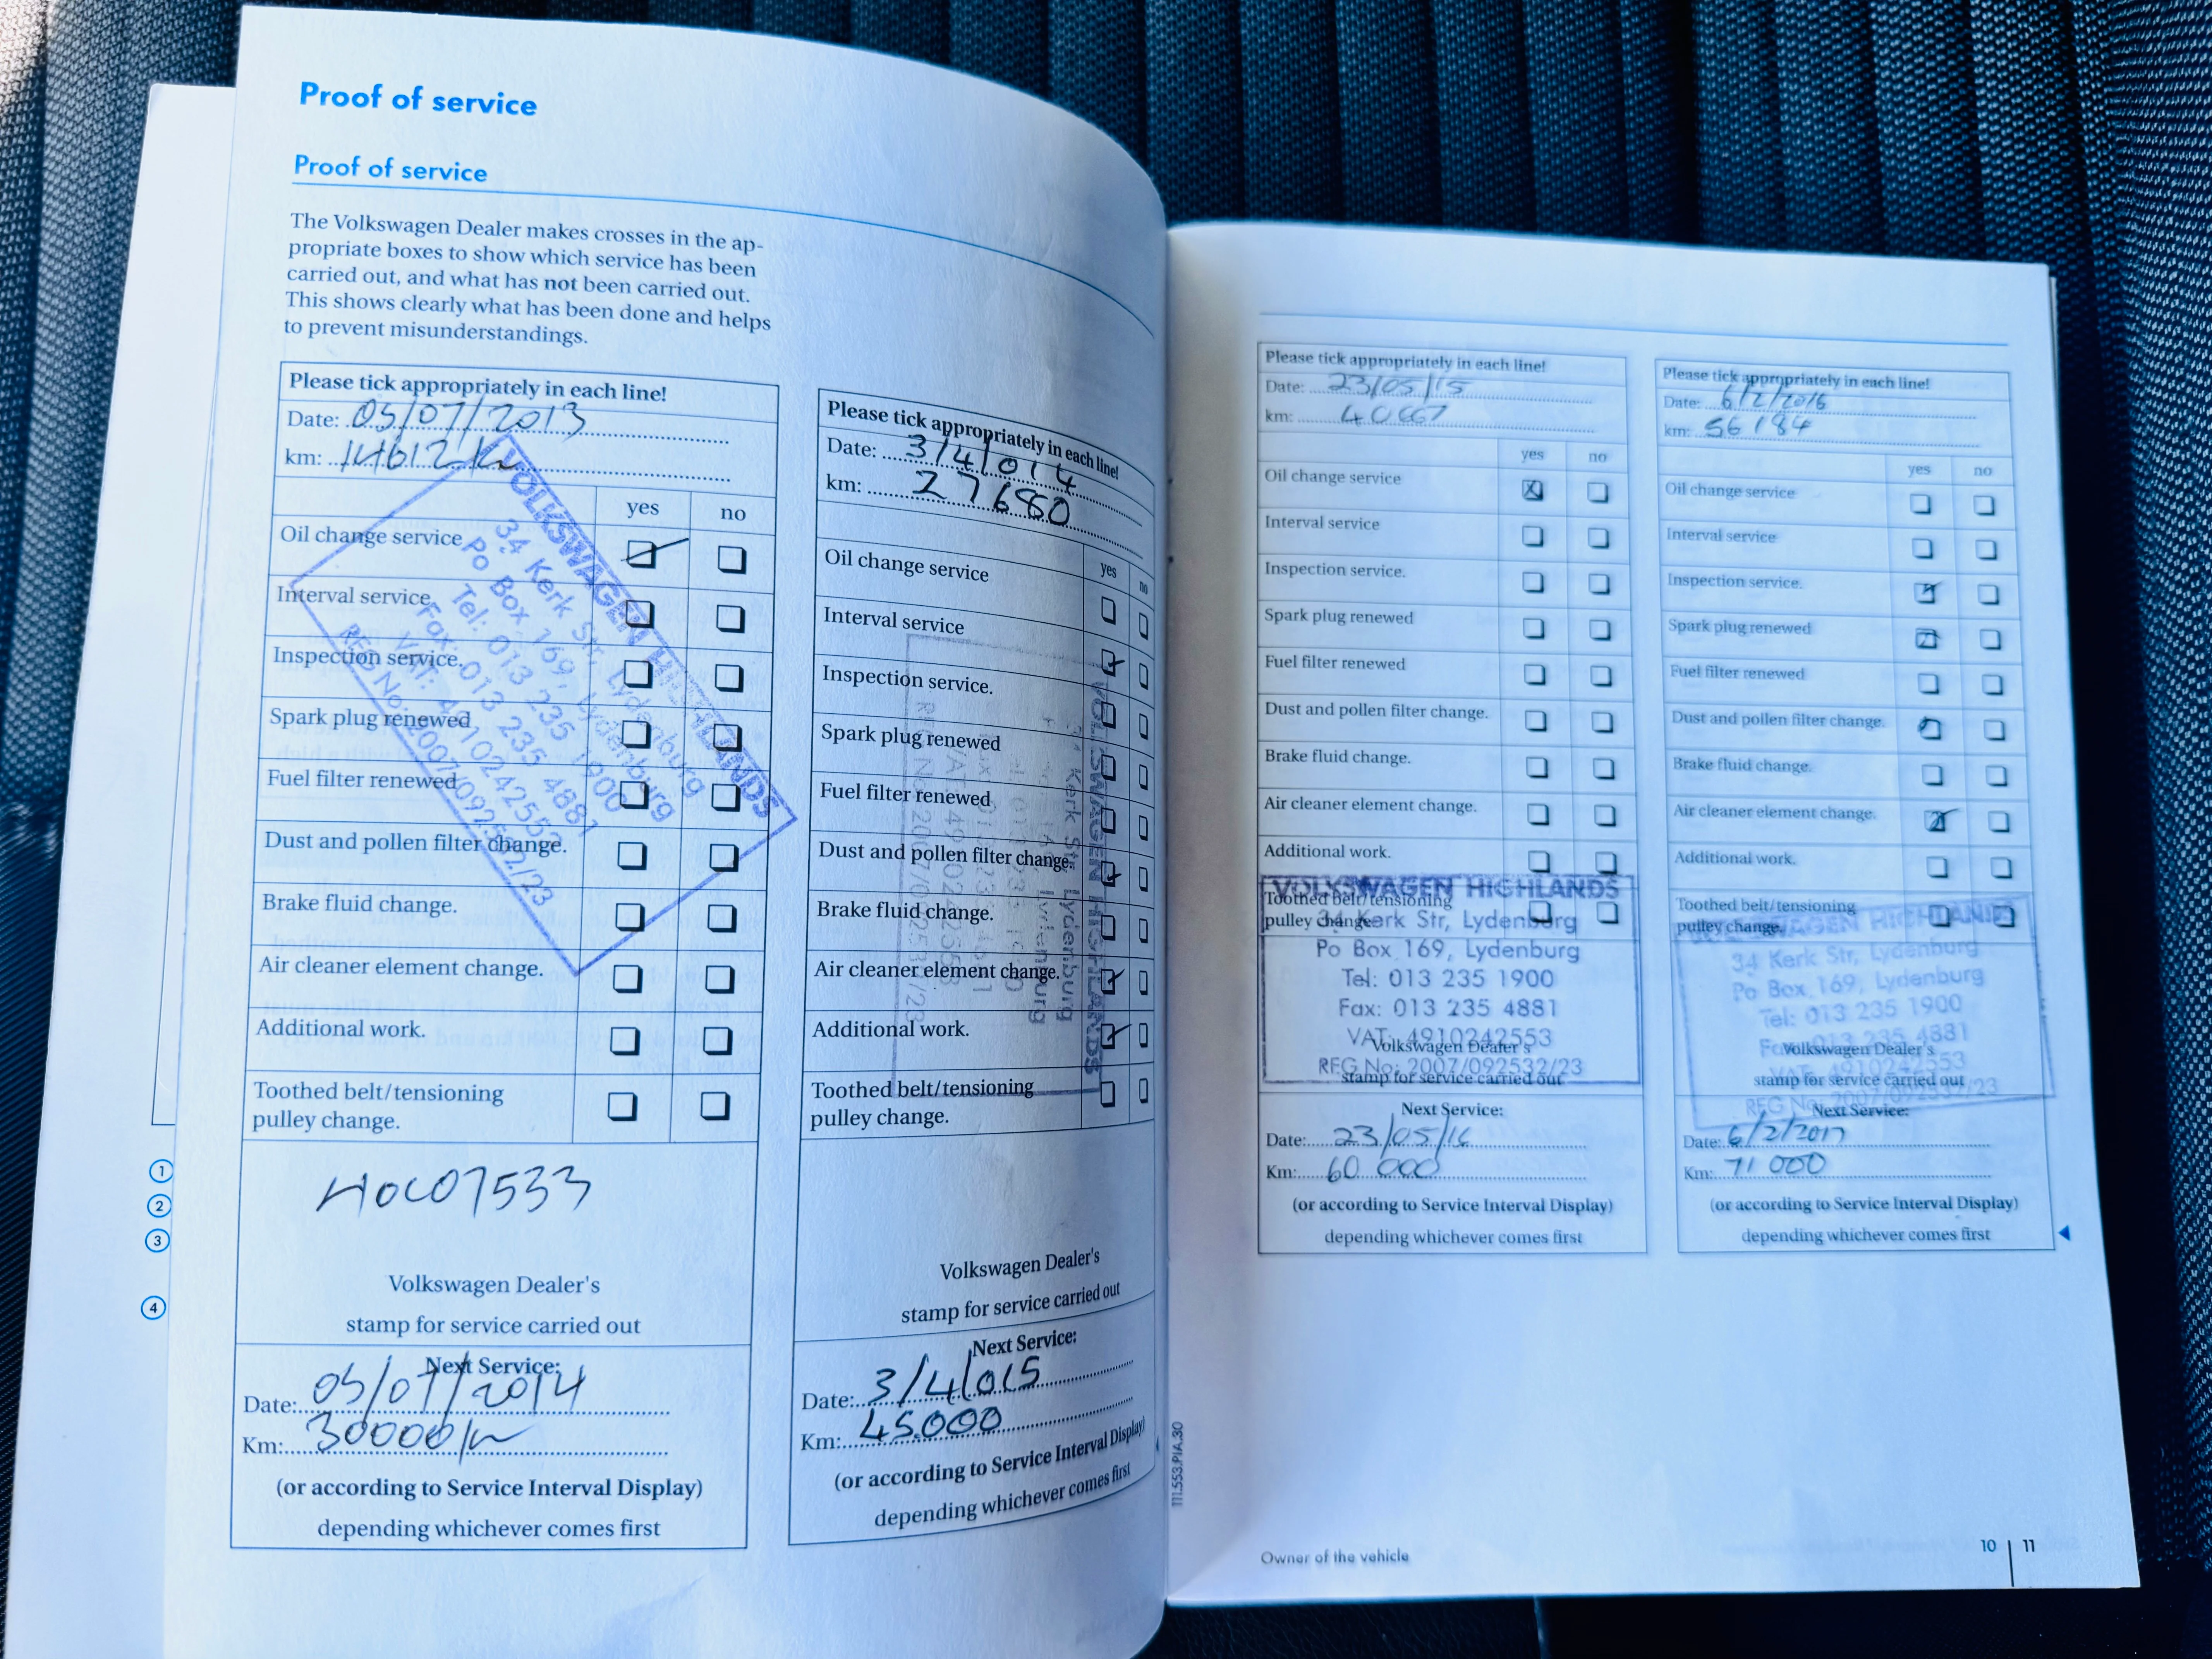 Proof of service
Proof of service
The Volkswagen Dealer makes crosses in the ap-
propriate boxes to show which service has been
carried out, and what has not been carried out.
This shows clearly what has been done and helps
to prevent misunderstandings.
Please tick appropriately in each line!
Date: 05/07/2013
km: 14612 km
yes no
Oil change service
Interval service
Inspection service.
Spark plug renewed
Fuel filter renewed
Dust and pollen filter change.
Brake fluid change.
Air cleaner element change.
Additional work.
Toothed belt/tensioning
pulley change.
VOLKSWAGEN HIGHLANDS
34 Kerk Str, Lydenburg
Po Box 169, Lydenburg
Tel: 013 235 1900
Fax: 013 235 4881
VAT: 4910242553
REG No: 2007/092532/23
Volkswagen Dealer's
stamp for service carried out
Next Service:
Date: 05/07/2014
Km: 30000 km
(or according to Service Interval Display)
depending whichever comes first
Please tick appropriately in each line!
Date: 3/4/014
km: 27680
yes no
Oil change service
Interval service
Inspection service.
Spark plug renewed
Fuel filter renewed
Dust and pollen filter change.
Brake fluid change.
Air cleaner element change.
Additional work.
Toothed belt/tensioning
pulley change.
VOLKSWAGEN HIGHLANDS
Kerk Str, Lydenburg
Volkswagen Dealer's
stamp for service carried out
Next Service:
Date: 3/4/015
Km: 45.000
(or according to Service Interval Display)
depending whichever comes first
111.553.PIA.30
Please tick appropriately in each line!
Date: 23/05/15
km: 40667
yes no
Oil change service
Interval service
Inspection service.
Spark plug renewed
Fuel filter renewed
Dust and pollen filter change.
Brake fluid change.
Air cleaner element change.
Additional work.
Toothed belt/tensioning
pulley change.
VOLKSWAGEN HIGHLANDS
34 Kerk Str, Lydenburg
Po Box 169, Lydenburg
Tel: 013 235 1900
Fax: 013 235 4881
VAT: 4910242553
REG No: 2007/092532/23
Volkswagen Dealer's
stamp for service carried out
Next Service:
Date: 23/05/16
Km: 60 000
(or according to Service Interval Display)
depending whichever comes first
Please tick appropriately in each line!
Date: 6/2/2016
km: 56184
yes no
Oil change service
Interval service
Inspection service.
Spark plug renewed
Fuel filter renewed
Dust and pollen filter change.
Brake fluid change.
Air cleaner element change.
Additional work.
Toothed belt/tensioning
pulley change.
VOLKSWAGEN HIGHLANDS
34 Kerk Str, Lydenburg
Po Box 169, Lydenburg
Tel: 013 235 1900
Fax: 013 235 4881
VAT: 4910242553
REG No: 2007/092532/23
Volkswagen Dealer's
stamp for service carried out
Next Service:
Date: 6/2/2017
Km: 71 000
(or according to Service Interval Display)
depending whichever comes first
Owner of the vehicle
10 11
1
2
3
4